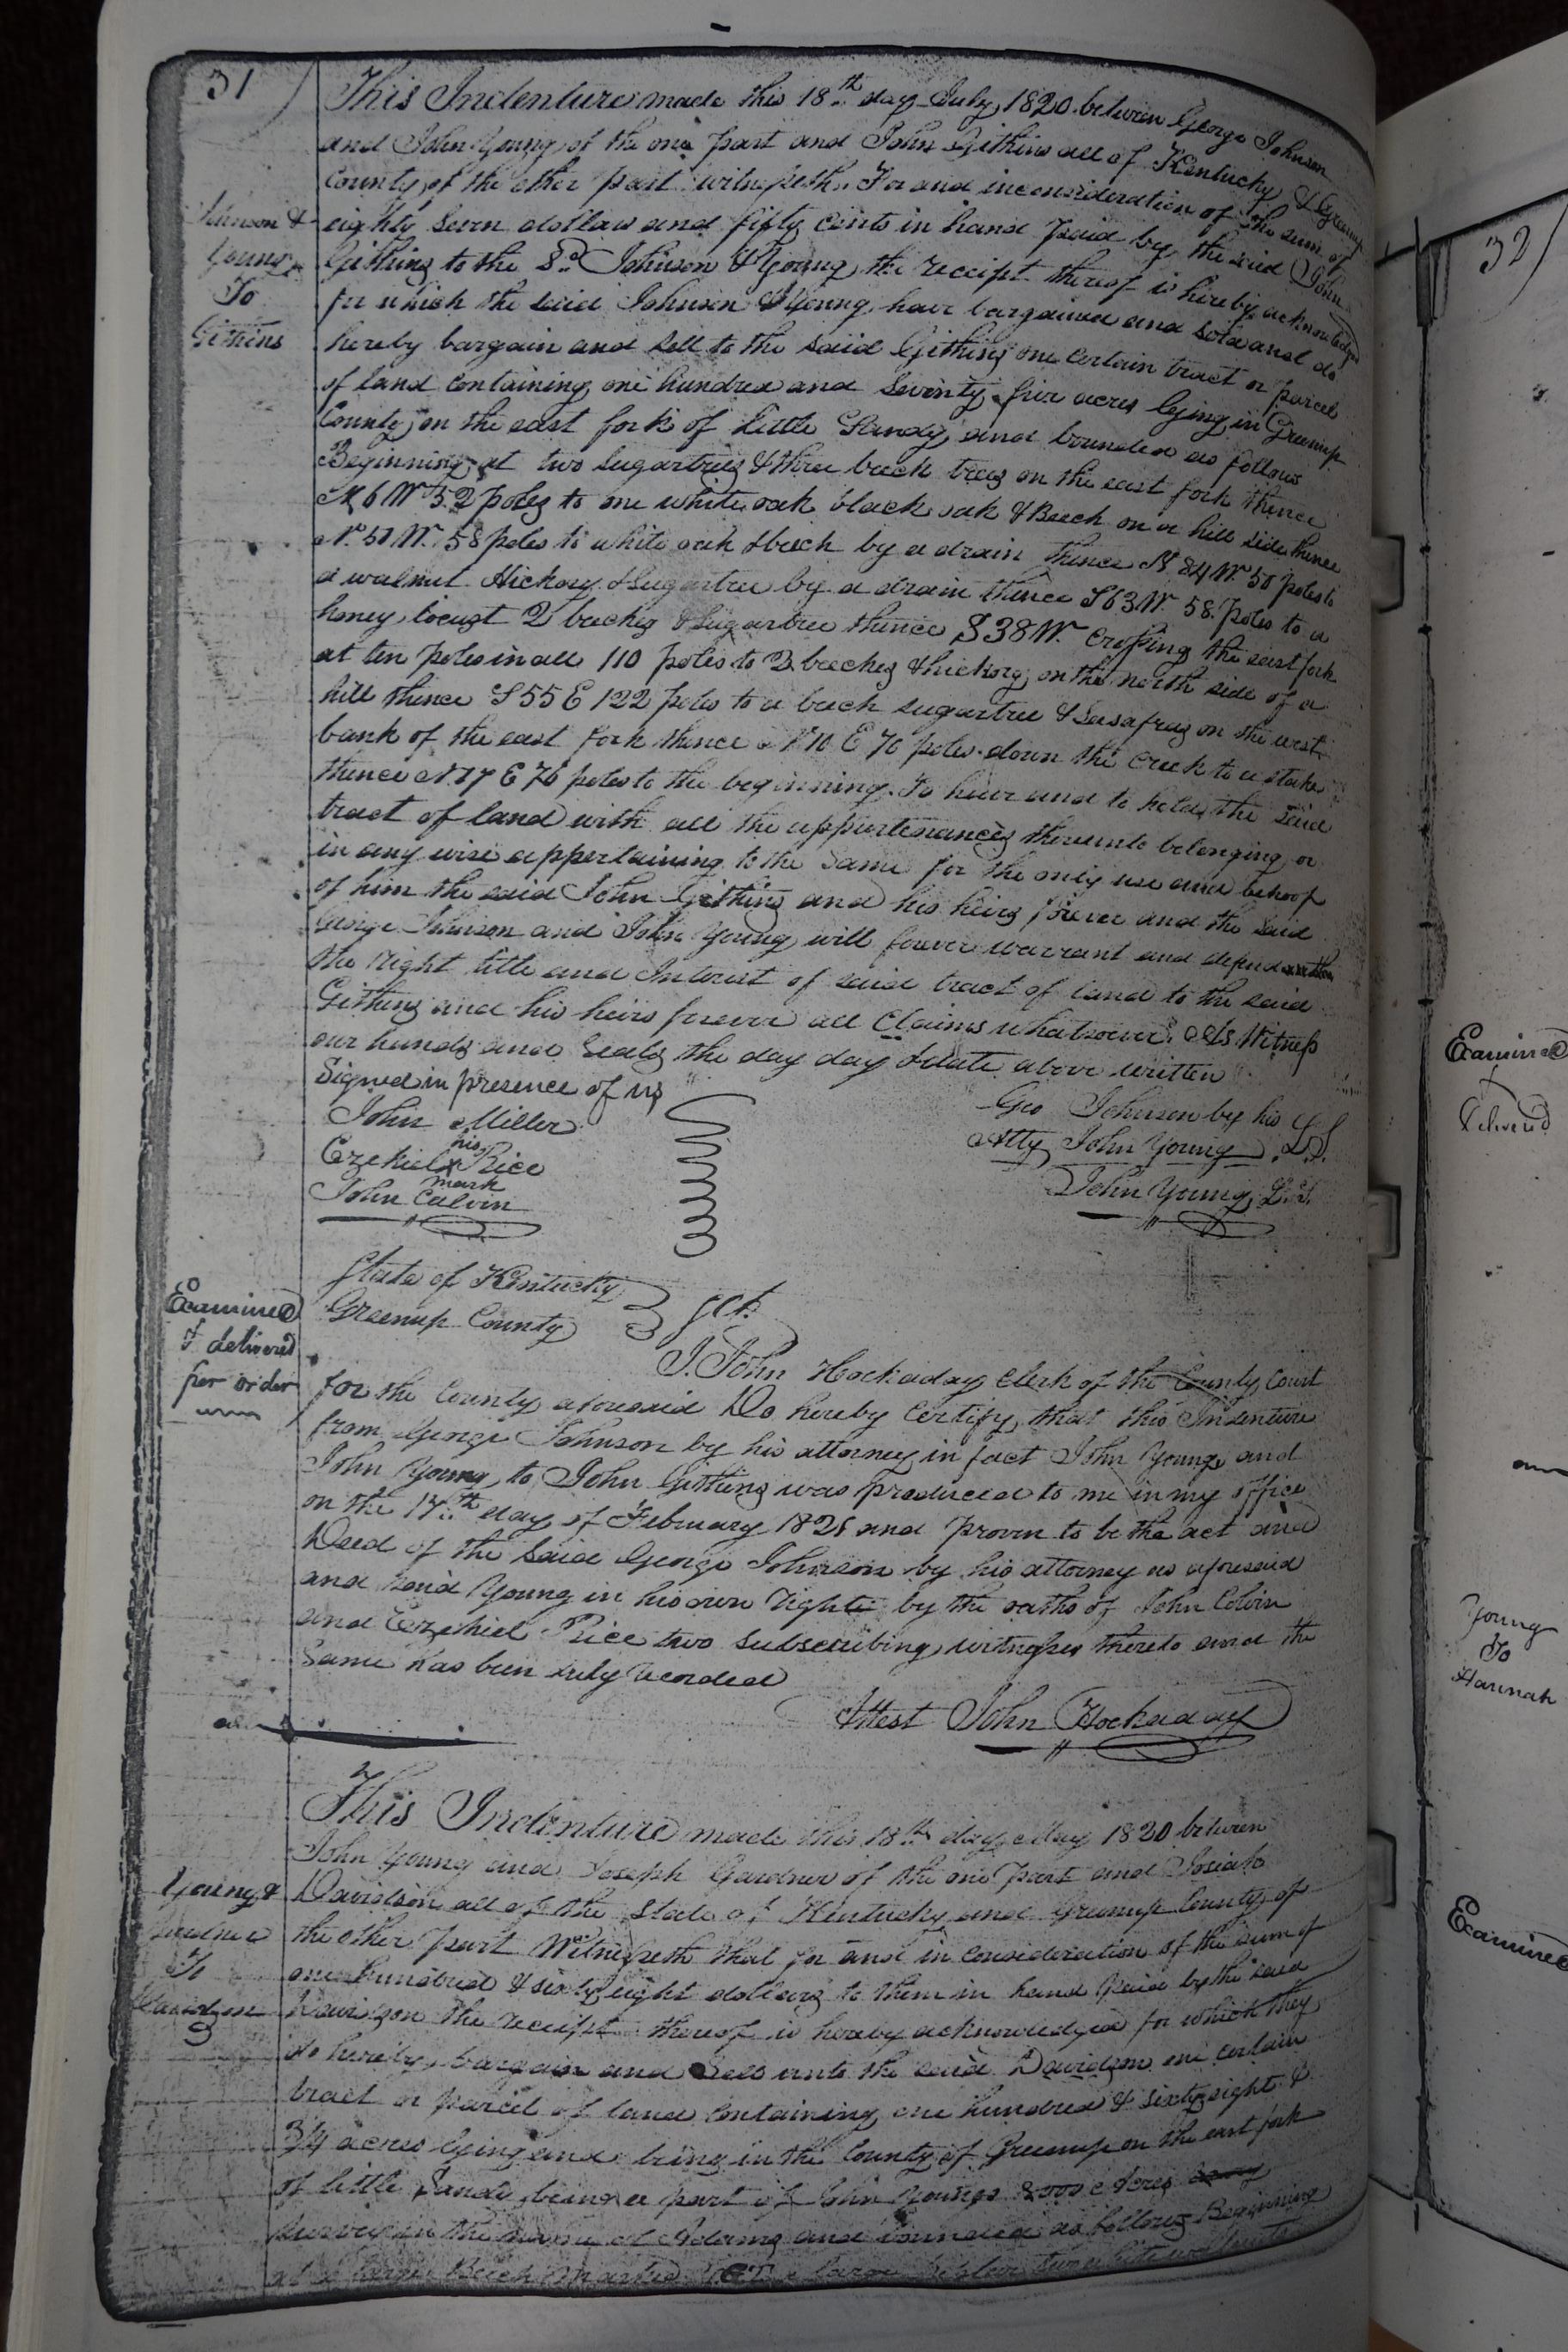 31
This Indenture made this 18th day July 1820 between George Johnson
and John Young of the one part and John Githins all of Kentucky & Greenup
County of the other part witnesseth. For and inconsideration of the sum of
eighty seven dollars and fifty cents in hand paid by the said John
Johnson &
Young
To
Githens
Githins to the Sd. Johnson & Young the receipt thereof is hereby acknowledged
for which the said Johnson & Young have bargained and sold and do
hereby bargain and sell to the said Githins one certain tract or parcel
of land containing one hundred and seventy five acres lying in Greenup
County on the east fork of little Sandy and bounded as follows
Beginning at two Sugartrees & three beech trees on the east fork thence
N 6 W 52 poles to one white oak black oak & Beech on a hill side thence
N. 51 W. 58 poles to white oak & beech by a drain thence N 84 W. 50 poles to
a walnut Hickory & Sugartree by a drain thence S 63 W. 58. poles to a
honey locust 2 beeches & Sugartree thence S 38 W. crossing the east fork
at ten poles in all 110 poles to 2 beeches & hickory on the north side of a
hill thence S 55 E 122 poles to a beech sugartree & Sasafras on the west
bank of the east fork thence N 10 E 70 poles down the creek to a stake
thence N. 17 E 76 poles to the beginning. To have and to hold the said
tract of land with all the appurtenances thereunto belonging or
in any wise appertaining to the same for the only use and behoof
of him the said John Githins and his heirs forever and the said
George Johnson and John Young will forever warrant and defend
the right title and Interest of said tract of land to the said
Githins and his heirs forever all Claims whatsoever. As Witness
our hands and Seals the day day & date above written
Signed in presence of us
John Miller
Ezekiel his x mark Rice
John Calvin
Geo Johnson by his
Atty John Young L.S.
John Young L.S.
State of Kentucky
Greenup County } Sct.
Examined
& delivered
per order
I John Hockaday Clerk of the County Court
for the County aforesaid Do hereby Certify that this Indenture
from George Johnson by his attorney in fact John Young and
John Young to John Githins was produced to me in my office
on the 17th day of February 1821 and proven to be the act and
Deed of the said George Johnson by his attorney as aforesaid
and said Young in his own right by the oaths of John Colvin
and Ezekiel Rice two subscribing witnesses thereto and the
Same has been duly recorded
Attest John Hockaday
This Indenture made this 18th day May 1820 between
John Young and Joseph Gardner of the one part and Josiah
Young &
Gardner
To
Davidson
Davidson all of the State of Kentucky and Greenup County of
the other part Witnesseth that for and in consideration of the sum of
one hundred & sixty eight dollars to them in hand paid by the said
Davidson the receipt thereof is hereby acknowledged for which they
do hereby bargain and Sell unto the said Davidson one certain
tract or parcel of land containing one hundred & sixty eight &
3/4 acres lying and being in the County of Greenup on the east fork
of little Sandy being a part of John Youngs Acres
Survey in the name of Adams and bounded as follows Beginning
at a large Beech marked large
32
Examined
Delivered
Young
To
Hannah
Examined